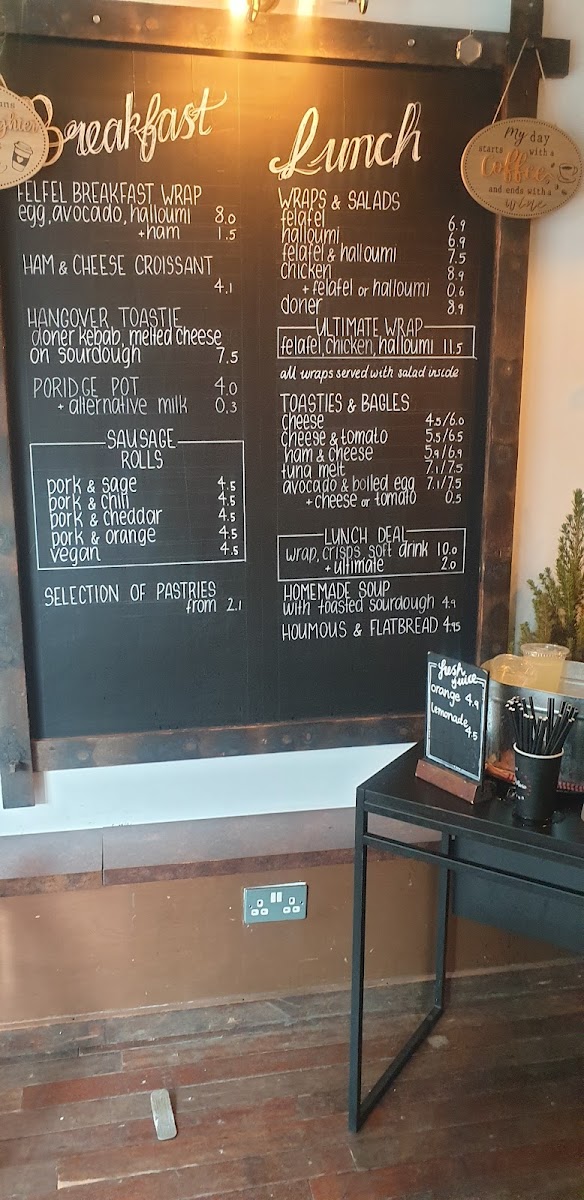 Breakfast
FELFEL BREAKFAST WRAP
egg, avocado, halloumi 8.0
+ham 1.5
HAM & CHEESE CROISSANT
4.1
HANGOVER TOASTIE
doner kebab, melted cheese
on sourdough 7.5
PORIDGE POT 4.0
+ alternative milk 0.3
SAUSAGE
ROLLS
pork & sage 4.5
pork & chili 4.5
pork & cheddar 4.5
pork & orange 4.5
vegan 4.5
SELECTION OF PASTRIES
from 2.1
Lunch
WRAPS & SALADS
felafel 6.9
halloumi 6.9
felafel & halloumi 7.5
chicken 8.9
+ felafel or halloumi 0.6
doner 8.9
ULTIMATE WRAP
felafel, chicken, halloumi 11.5
all wraps served with salad inside
TOASTIES & BAGLES
cheese 4.5/6.0
cheese & tomato 5.5/6.5
ham & cheese 5.9/6.9
tuna melt 7.1/7.5
avocado & boiled egg 7.1/7.5
+ cheese or tomato 0.5
LUNCH DEAL
wrap, crisps, soft drink 10.0
+ ultimate 2.0
HOMEMADE SOUP
with toasted sourdough 4.9
HOUMOUS & FLATBREAD 4.95
My day
starts with a
Coffee
and ends with a
wine
fresh
juice
orange 4.9
lemonade
4.5